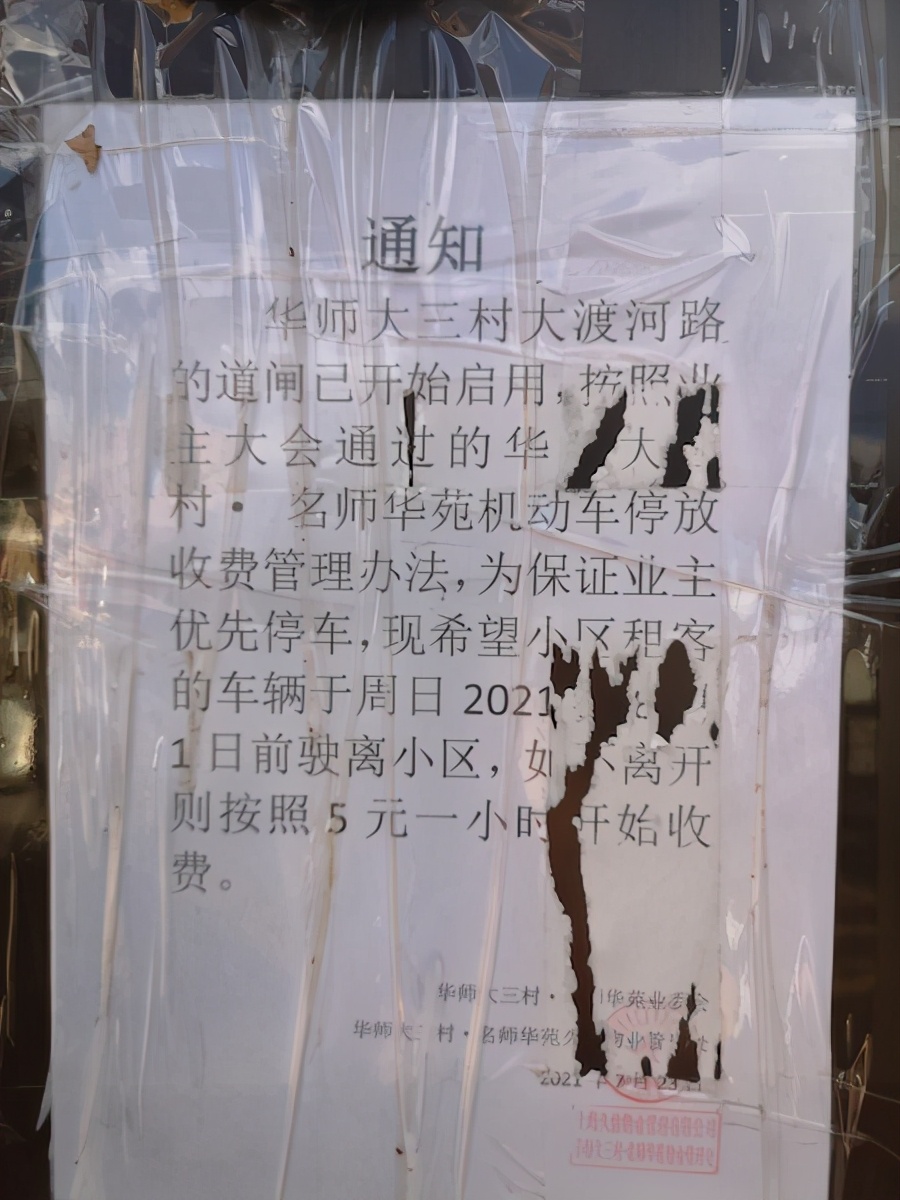 通知
华师大三村大渡河路
的道闸已开始启用，按照业
主大会通过的华 大
村· 名师华苑机动车停放
收费管理办法，为保证业主
优先停车，现希望小区租客
的车辆于周日 2021
1 日前驶离小区，如不离开
则按照 5 元一小时开始收
费。
华师大三村· 华苑业委会
华师大三村·名师华苑 物业
2021 年 7 月 23 日